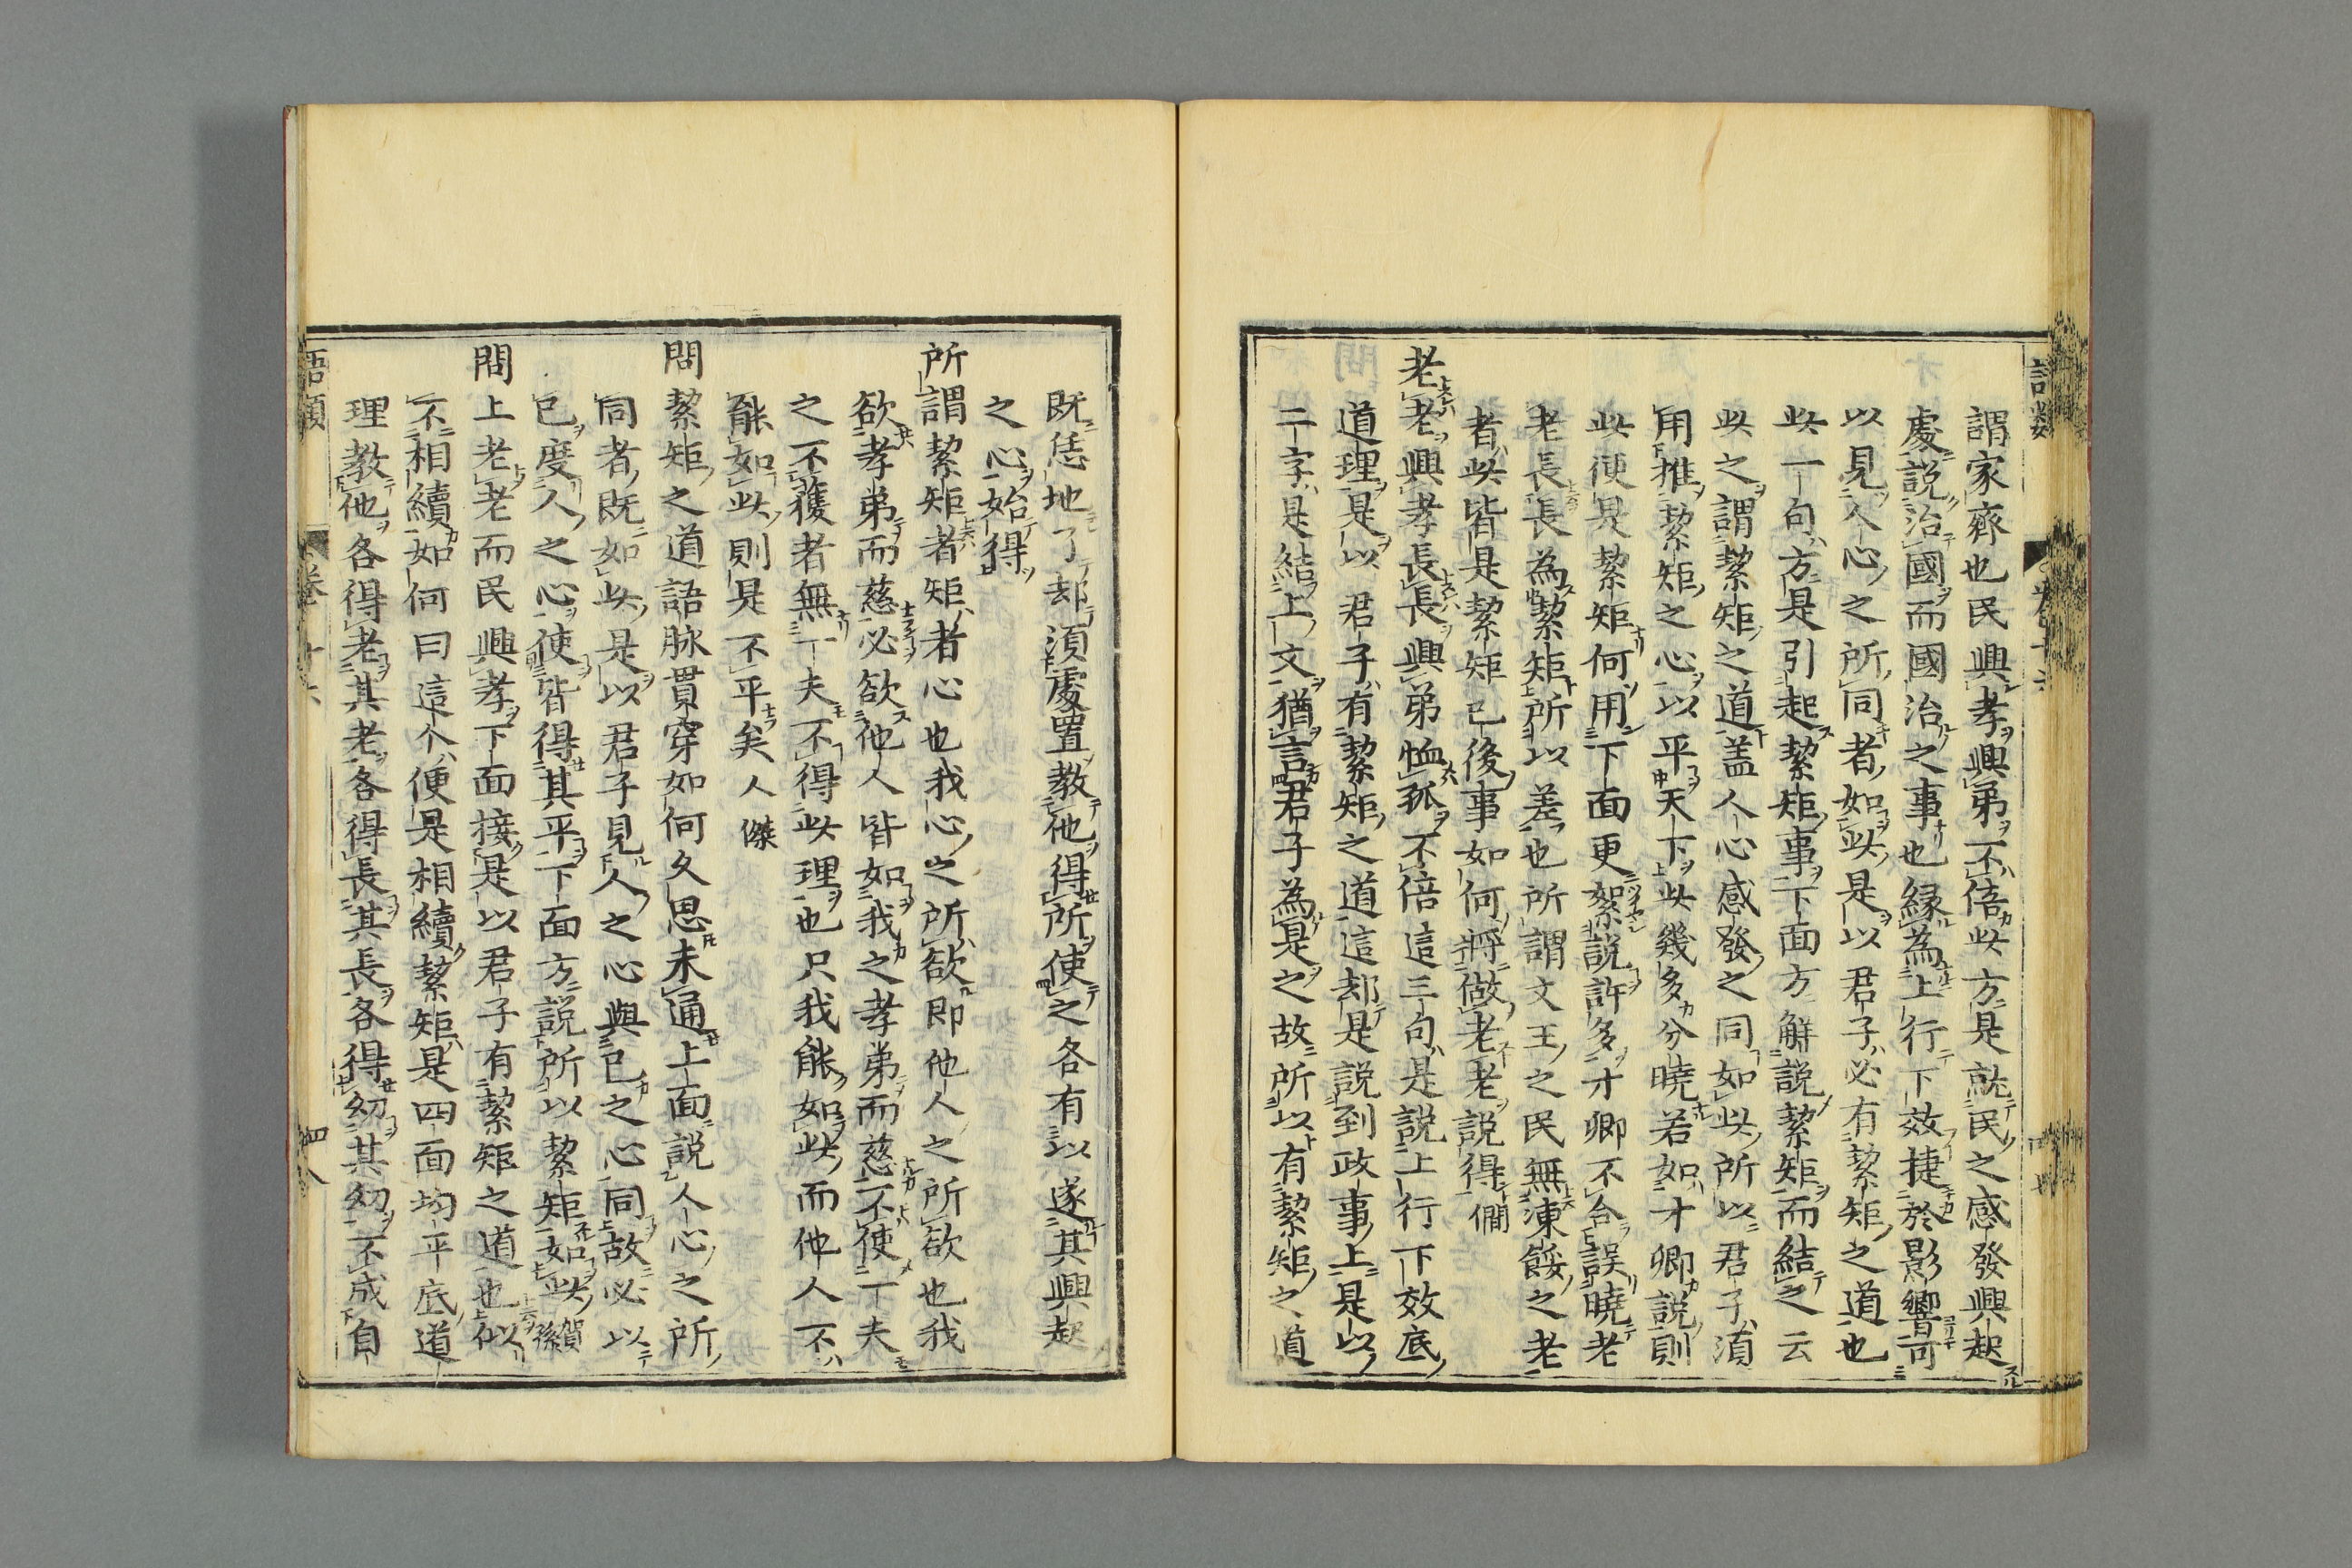 謂家齊也民興孝興弟不倍此方是就民之感發興起
處說治國而國治之事也縁為上行下效捷於影響可
以見人心之所同者如此是以君子必有絜矩之道也
此一句方是引起絜矩事下面方解説絜矩而結之云
此之謂絜矩之道盖人心感發之同如此所以君子須
用推絜矩之心以平天下此幾多分曉若如才卿説則
此便是絜矩何用下面更絮説許多才卿不合誤曉老
老長長為絜矩所以差也所謂文王之民無凍餒之老
者此皆是絜矩已後事如何將做老老説得僩
老老興孝長長興弟恤孤不倍這三句是説上行下效底
道理是以君子有絜矩之道這却是説到政事上是以
二字是結上文猶言君子為是之故所以有絜矩之道
既恁地了却須處置教他得所使之各有以遂其興起
之心始得
所謂絜矩者矩者心也我心之所欲即他人之所欲也我
欲孝弟而慈必欲他人皆如我之孝弟而慈不使一夫
之不獲者無一夫不得此理也只我能如此而他人不
能如此則是不平矣人傑
問絜矩之道語脉貫穿如何久思未通上面説人心之所
同者既如此是以君子見人之心與已之心同故必以
已度人之心使皆得其平下面方説所以絜矩如此賀孫
問上老老而民興孝下面接是以君子有絜矩之道也似
不相續如何曰這个便是相續絜矩是四面均平底道
理教他各得老其老各得長其長各得幼其幼不成自
語類 卷十六 四八